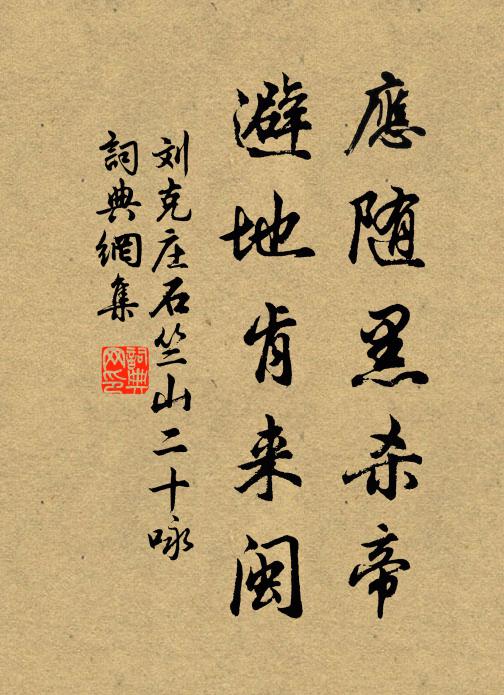 應随黑杀帝
避地肯来闽
刘克庄石竺山二十咏
詞典網集
詞典
网印